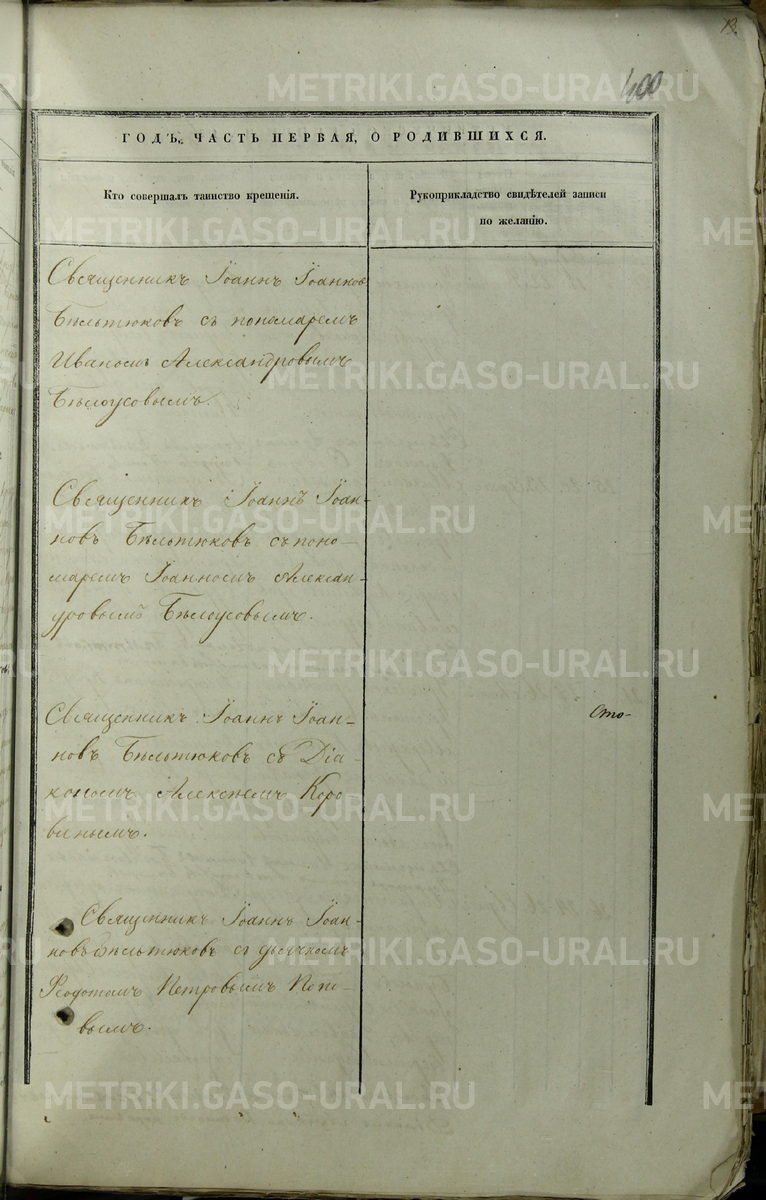 13.
400
METRIKI.GASO-URAL.RU
ГОДЪ, ЧАСТЬ ПЕРВАЯ, О РОДИВШИХСЯ.
Кто совершалъ таинство крещенія.
Рукоприкладство свидѣтелей записи
по желанію.
Священникъ Іоаннъ Іоаннов
Бѣльтюковъ съ пономаремъ
Иваномъ Александровымъ
Бѣлоусовымъ.
Священникъ Іоаннъ Іоан-
новъ Бѣльтюковъ съ поно-
маремъ Іоанномъ Алексан-
дровымъ Бѣлоусовымъ.
Священникъ Іоаннъ Іоан-
новъ Бѣльтюковъ съ Діа-
кономъ Алексѣемъ Коро
винымъ.
Сто-
Священникъ Іоаннъ Іоан-
новъ Бѣльтюковъ съ дьячкомъ
Ѳеодотомъ Петровымъ Попо-
вымъ.